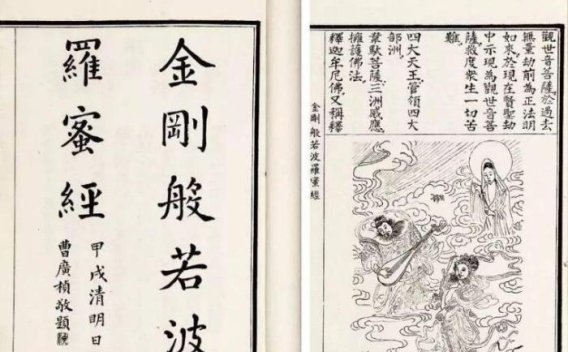 金剛般若波
羅蜜經
甲戌清明日
曹廣楨敬題
觀世音菩薩。於過去
無量劫前為正法明
如來。於現在賢聖劫
中示現為觀世音菩
薩。救度衆生一切苦
難。
四大天王。管領四大
部洲。
韋馱菩薩。三洲感應。
擁護佛法。
釋迦牟尼佛。又稱釋
金剛般若波羅蜜經